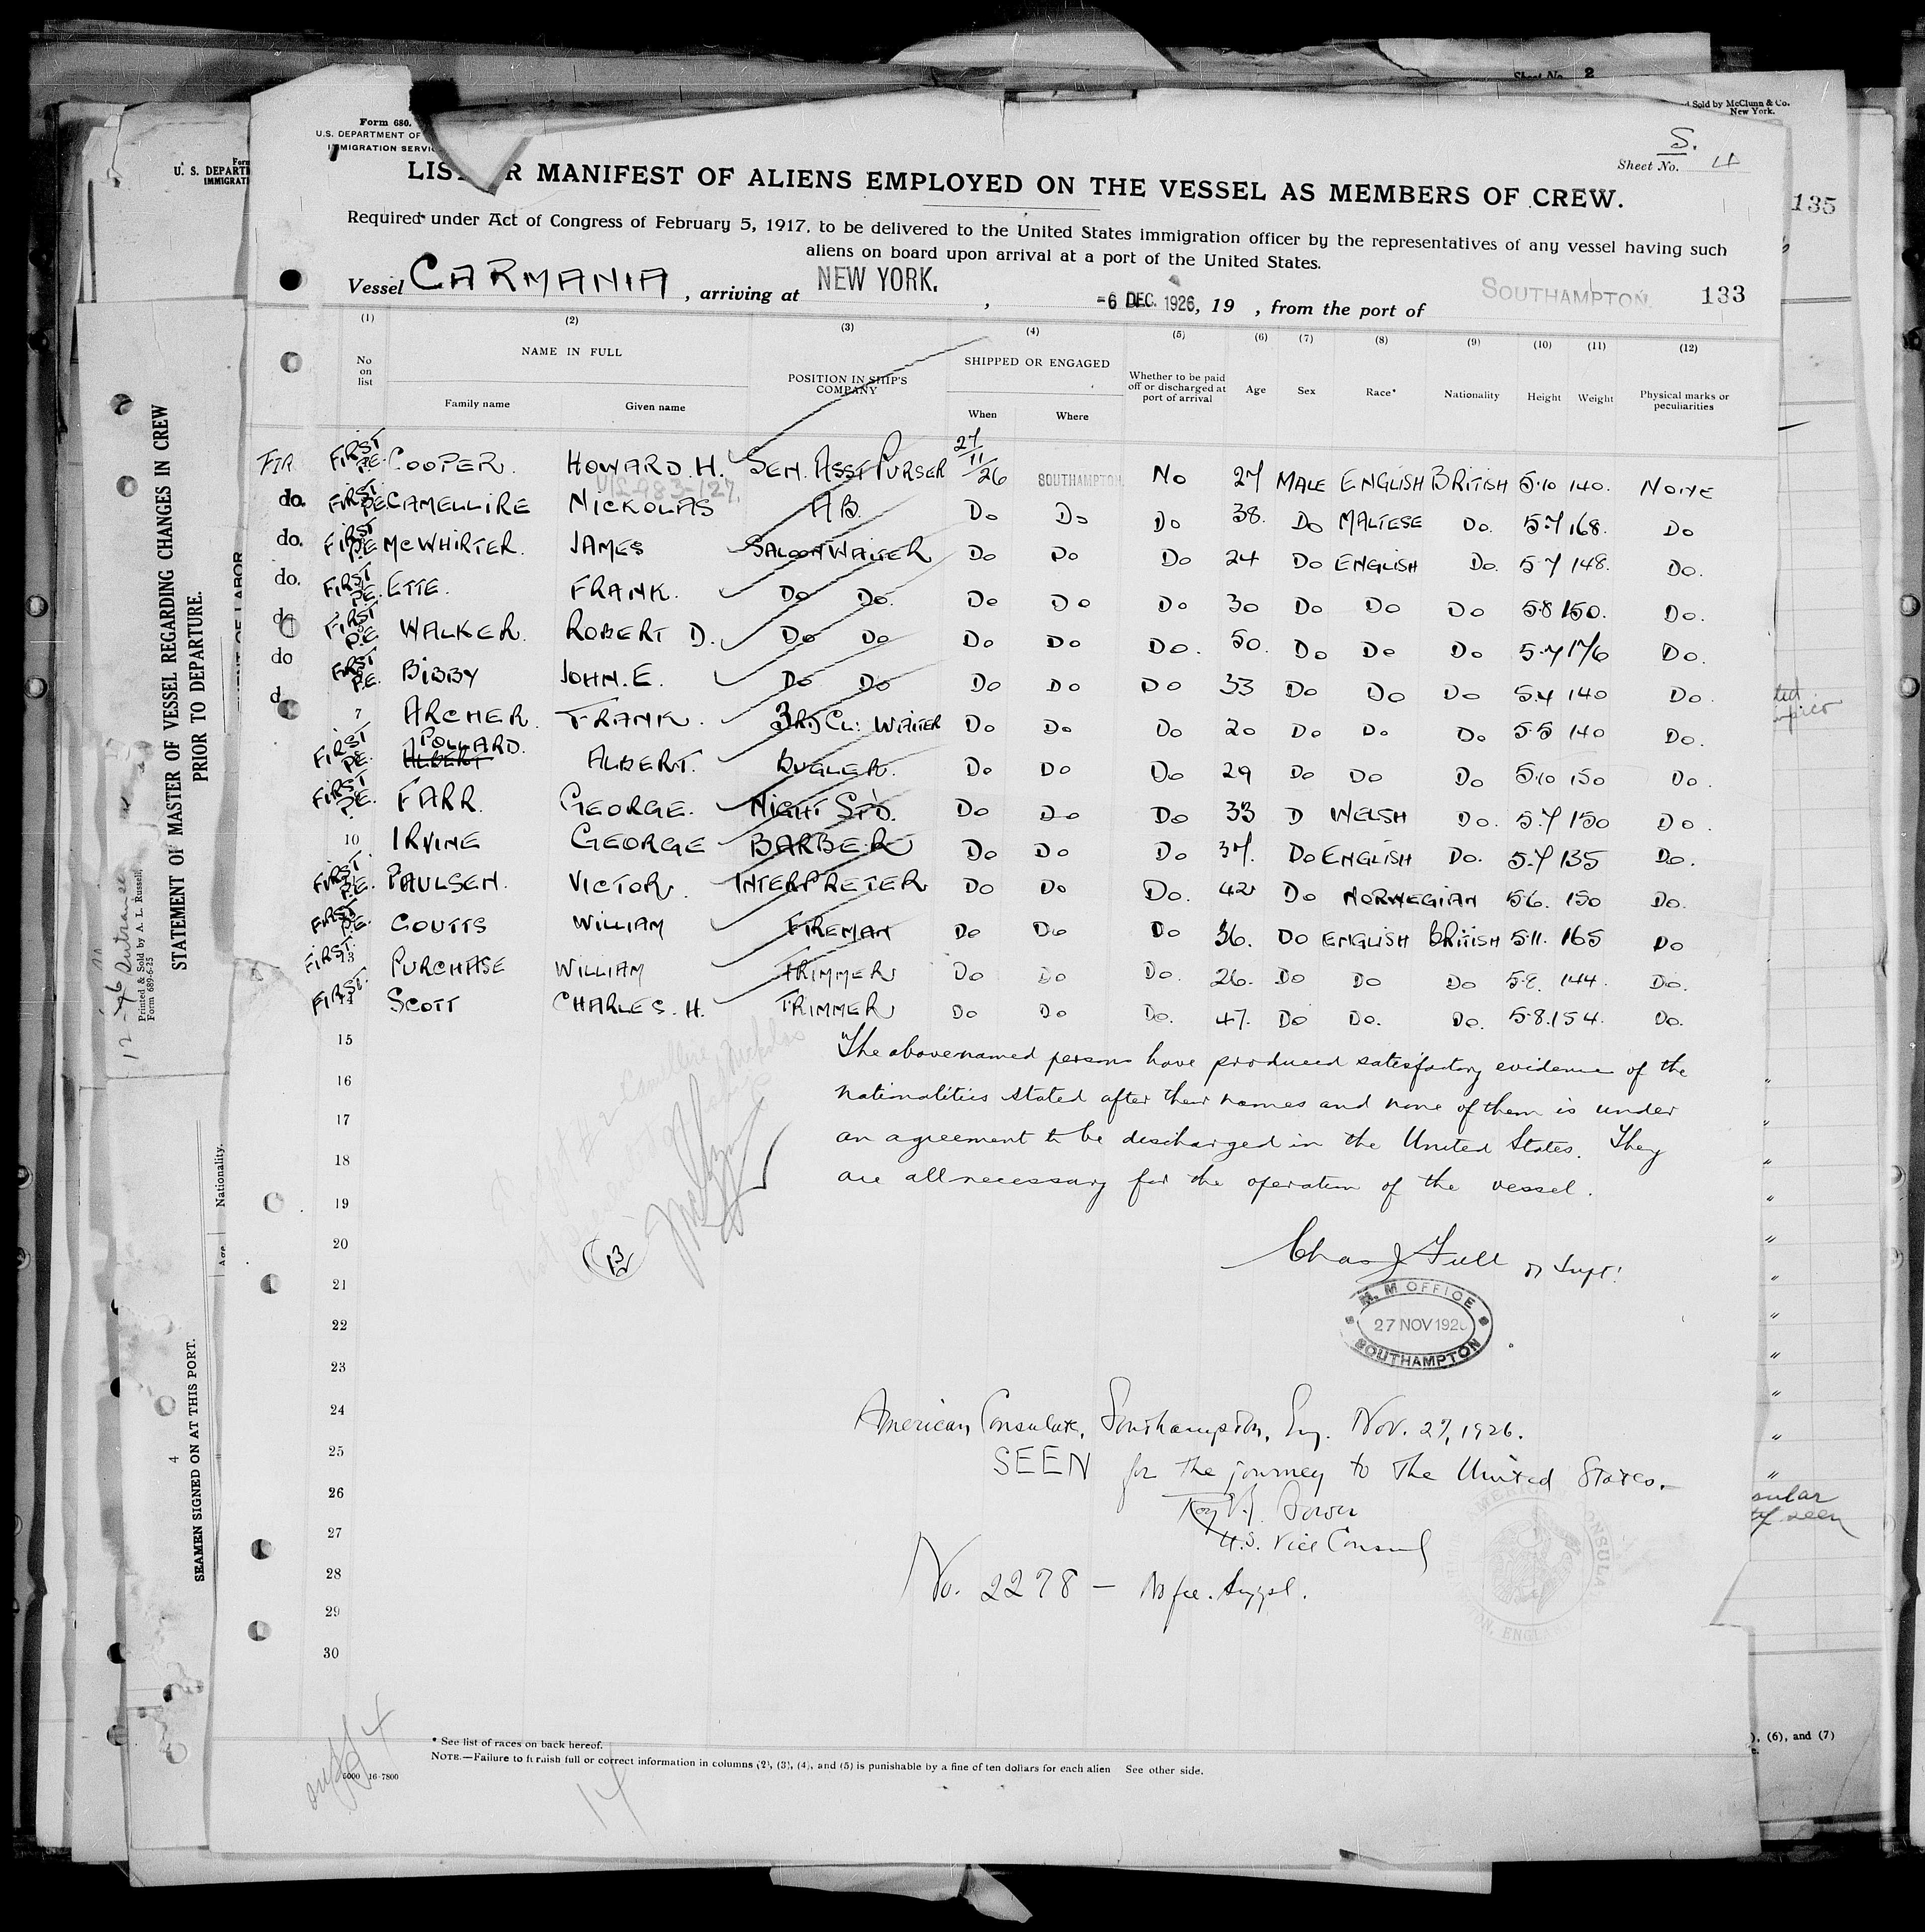 Sheet No. 2
d Sold by McClunn & Co.
New York.
Form 680.
U.S. DEPARTMENT OF
IMMIGRATION SERVIC
Form
U. S. DEPARTM
IMMIGRATI
S.
Sheet No. 4
LIST OR MANIFEST OF ALIENS EMPLOYED ON THE VESSEL AS MEMBERS OF CREW.
135
Required under Act of Congress of February 5, 1917, to be delivered to the United States immigration officer by the representatives of any vessel having such
aliens on board upon arrival at a port of the United States.
Vessel CARMANIA, arriving at NEW YORK. , -6 DEC. 1926, 19 , from the port of SOUTHAMPTON. 133
(1) (2) (3) (4) (5) (6) (7) (8) (9) (10) (11) (12)
No on list NAME IN FULL POSITION IN SHIP'S COMPANY SHIPPED OR ENGAGED Whether to be paid off or discharged at port of arrival Age Sex Race* Nationality Height Weight Physical marks or peculiarities
Family name Given name When Where
FIR FIRST P.E. COOPER. HOWARD H. SEN. ASST PURSER 27/11/26 SOUTHAMPTON No 27 MALE ENGLISH BRITISH 5.10 140. NONE
do. FIRST P.E. CAMELLIRE NICKOLAS A B. Do Do Do 38. Do MALTESE Do. 5.7 168. Do
do. FIRST P.E. McWHIRTER. JAMES SALOON WAITER Do Do Do 24 Do ENGLISH Do. 5.7 148. Do.
do. FIRST P.E. ETTE. FRANK. Do Do. Do Do Do 30 Do Do Do 5.8 150. Do.
do FIRST P.E. WALKER. ROBERT D. Do Do Do Do Do. 50. Do Do Do 5.7 176 Do.
do FIRST P.E. BIBBY JOHN. E. Do Do Do Do Do 33 Do Do Do 5.4 140 Do.
d 7 ARCHER. FRANK. 3RD CL: WAITER Do Do Do 20 Do Do Do 5.5 140 Do.
FIRST P.E. ALBERT POLLARD. ALBERT. BUGLER. Do Do Do 29 Do Do Do 5.10 150 Do.
FIRST P.E. FARR. GEORGE. NIGHT STD. Do Do Do 33 D WELSH Do. 5.7 150 Do.
10 IRVINE GEORGE BARBER Do Do Do 37. Do ENGLISH Do. 5.7 135 Do.
FIRST P.E. PAULSEN. VICTOR. INTERPRETER Do Do Do. 42 Do NORWEGIAN 5.6. 150 Do.
FIRST P.E. COUTTS WILLIAM FIREMAN Do Do Do 36. Do ENGLISH BRITISH 5.11. 165 Do
FIRST. 13 PURCHASE WILLIAM TRIMMER Do Do Do. 26. Do Do Do 5.8. 144. Do.
FIRST. 14 SCOTT CHARLES. H. TRIMMER Do Do Do. 47. Do Do. Do. 5.8. 154. Do.
15
16
17
18
19
20
21
22
23
24
25
26
27
28
29
30
The abovenamed persons have produced satisfactory evidence of the
nationalities stated after their names and none of them is under
an agreement to be discharged in the United States. They
are all necessary for the operation of the vessel.
Camellire, Nickolas
13
Chas J Tull
Supt.
M. M OFFICE
27 NOV 192
SOUTHAMPTON
American Consulate, Southampton, Eng. Nov. 27, 1926.
SEEN for the journey to the United States.
U.S. Vice Consul
No. 2278 — No fee.
14
* See list of races on back hereof.
NOTE.—Failure to furnish full or correct information in columns (2), (3), (4), and (5) is punishable by a fine of ten dollars for each alien See other side.
16-7800
STATEMENT OF MASTER OF VESSEL REGARDING CHANGES IN CREW
PRIOR TO DEPARTURE.
Printed & Sold by A. L. Russell,
Form 689-6-25
SEAMEN SIGNED ON AT THIS PORT.
4
Nationality.
Age
ENT OF LABOR
sular
seen
), (6), and (7)